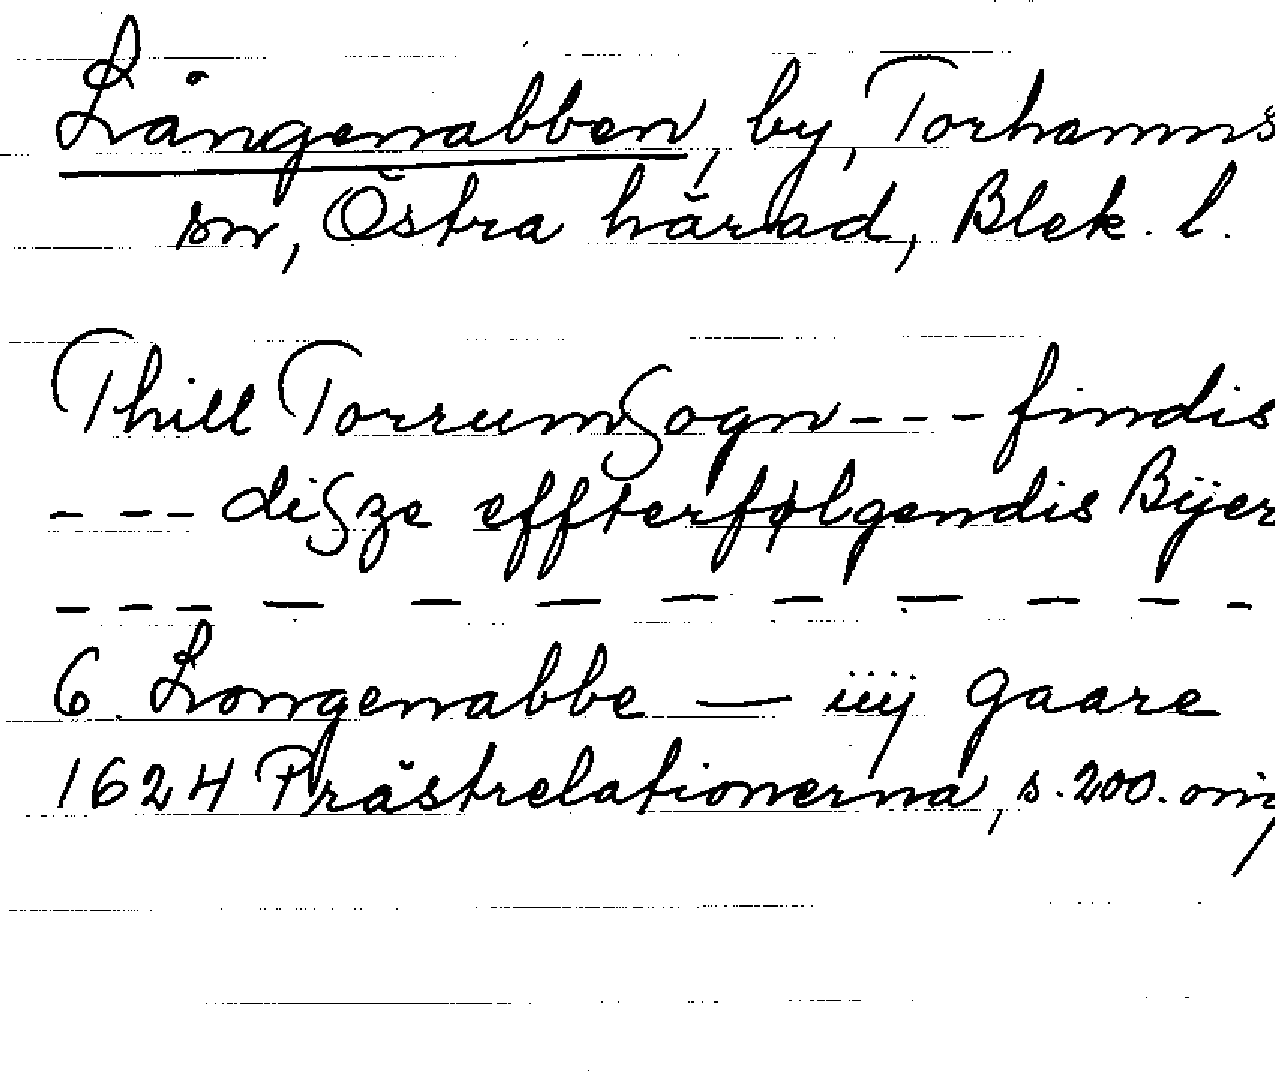 Långenabben, by, Torhamns
sn, Östra härad, Blek. l.
Thill Torrumsogn --- findis
--- disze effterfølgendis Bÿer
--- — — — — — — — — -
6. Longenabbe — iiij gaare
1624 Prästrelationerna, s. 200. orig